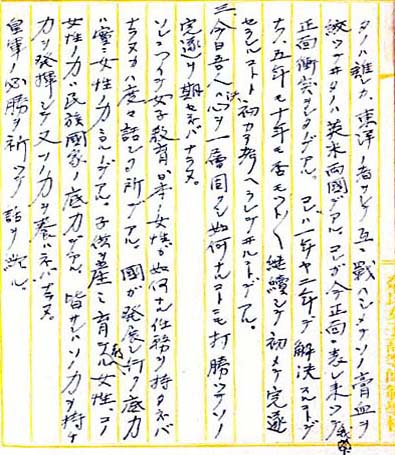 タノハ誰カ、東洋ノ者ヲシテ互ニ戦ハシメテソノ膏血ヲ
絞ツテヰタノハ英米両國デアル。コレガ今正面ニ表レ来ツテ
正面衝突シタノデアル。コレハ一年ヤ二年デ解決スルコトデ
ナク五年モ十年モ否モツト〱継續シテ初メテ完遂
セラレルコトト初カラ考ヘラレテヰルコトデアル。
三、今日吾々ハ決心ヲ一層固クシ如何ナルコトニモ打勝ツテソノ
完遂ヲ期セネバナラヌ。
ソレニツイテ女子教育、日本ノ女性ガ如何ナル任務ヲ持タネバ
ナラヌカハ度々話シタ所デアル。國ガ発展シ行ク底力
ハ實ニ女性ノ力ニヨルノデアル。子供ヲ産ミ育テル女性、コノ
女性ノ力ハ民族國家ノ底力デアル。皆サンハソノ力ヲ持チ
力ヲ発揮シテ又ソノ力ヲ養ハネバナラヌ。
皇軍ノ必勝ヲ祈ツテ話ヲ終ル。